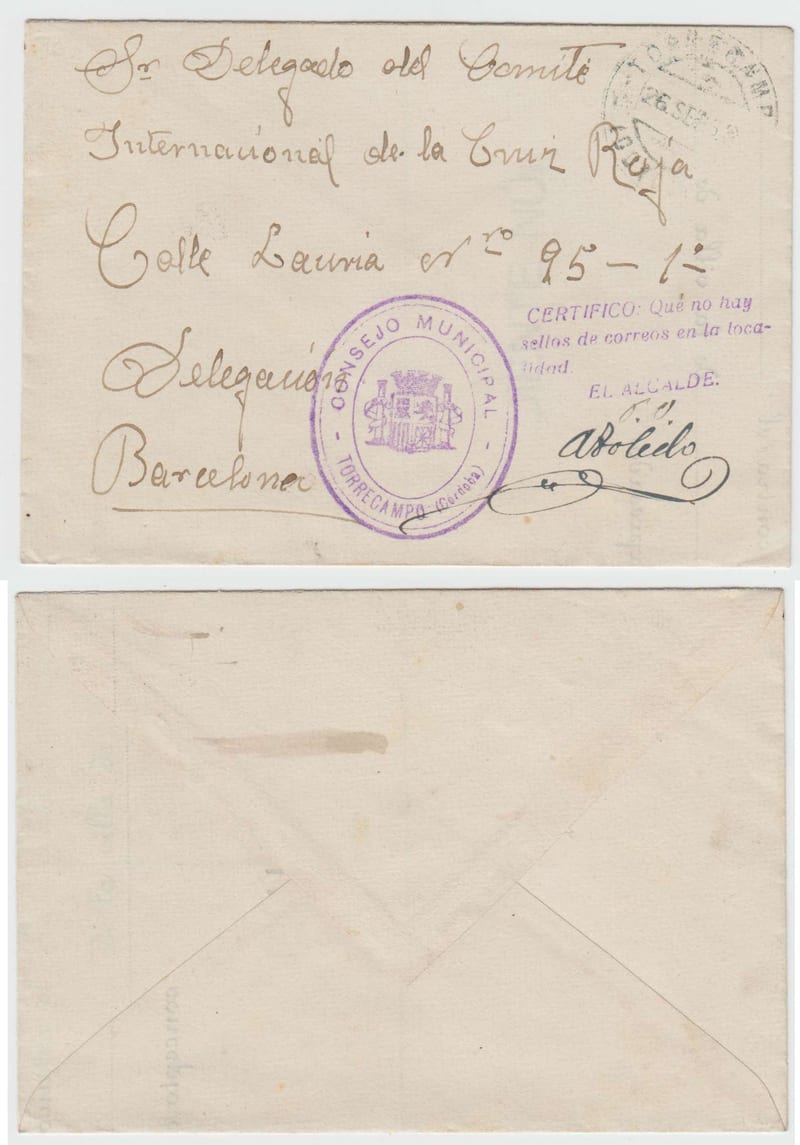 Sr Delegado del Comité
Internacional de la Cruz Roja
Calle Lauria Nro 95 - 1º
Delegación
Barcelona
TORRECAMPO
26 SEP
CERTIFICO: Que no hay
sellos de correos en la loca-
lidad.
EL ALCALDE.
CONSEJO MUNICIPAL
TORRECAMPO (Cordoba)